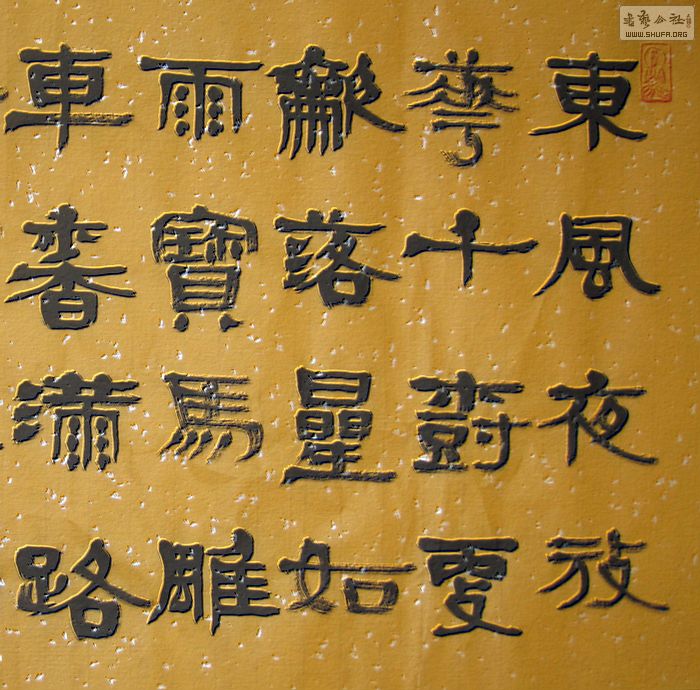 東風夜放
華千樹更
龡落星如
雨寶馬雕
車香滿路
书艺公社
WWW.SHUFA.ORG